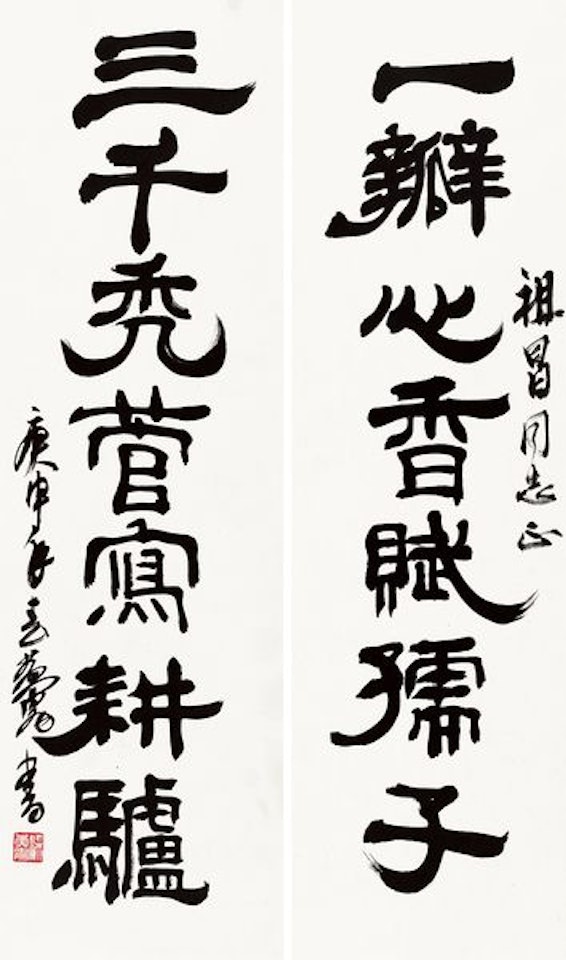 祖昌同志正
一瓣心香賦孺子
三千禿菅寫耕驢
庚申年書